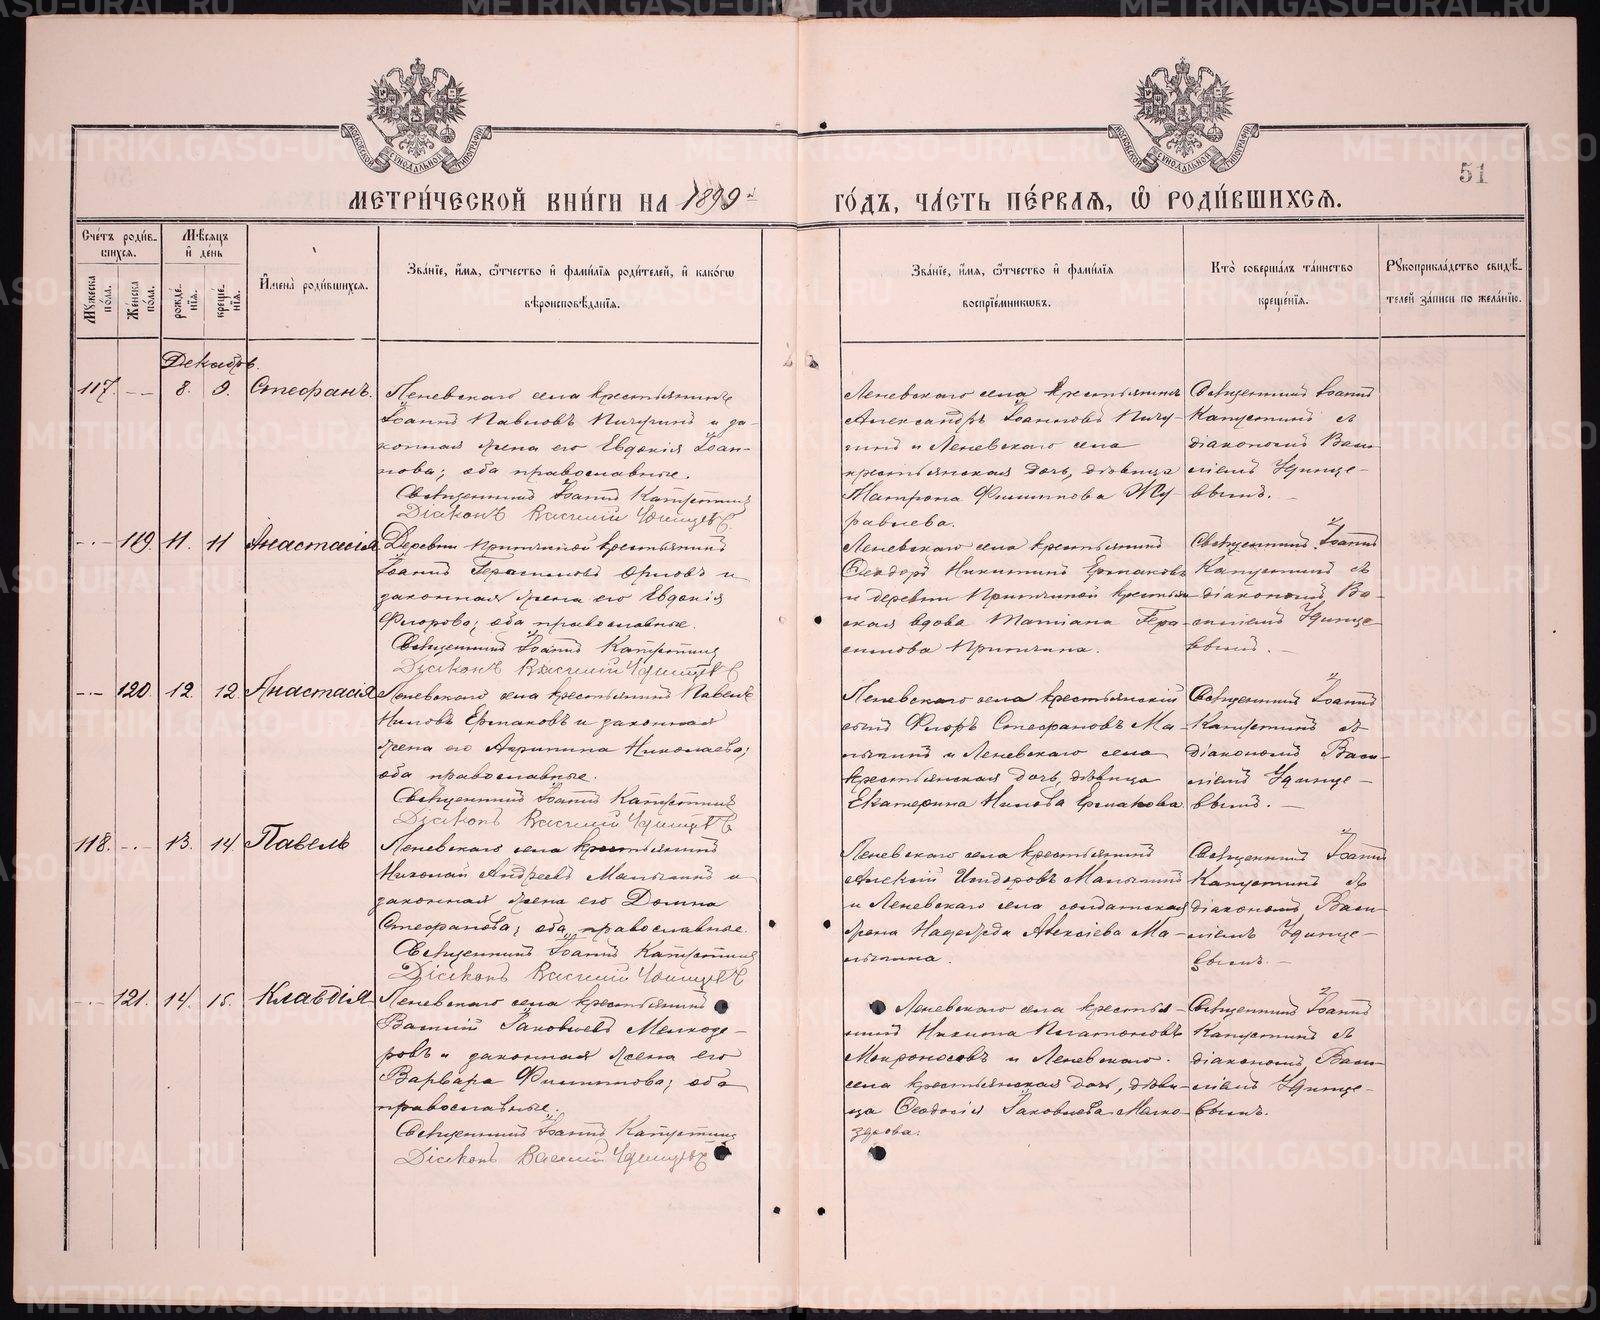 METRIKI.GASO-URAL.RU
51
МЕТРИ́ЧЕСКОЙ КНИ́ГИ НА 1899 й
ГО́ДЪ, ЧА́СТЬ ПЕ́РВАЯ, Ѡ҆ РОДИ́ВШИХСЯ.
Сче́тъ роди́в-
шихся.
Мꙋжеска по́ла.
Же́нска по́ла.
Мѣ́сяцъ и҆ де́нь
рожде́-нїя.
креще́-нїя.
И҆мена̀ роди́вшихся.
Зва́нїе, и҆́мя, ѻ҆́тчество и҆ фами́лїя роди́телей, и҆ како́гѡ
вѣроисповѣ́данїя.
Зва́нїе, и҆́мя, ѻ҆́тчество и҆ фами́лїя
воспрїе́мниковъ.
Кто̀ соверша́лъ та́инство
креще́нїя.
Рꙋкоприкла́дство свидѣ́-
телей за́писи по жела́нїю.
Декабрь.
117. -- 8. 9. Стефанъ.
Леневскаго села крестьянинъ
Іоаннъ Павловъ Пичугинъ и за-
конная жена его Евдокія Іоан-
нова; оба православные.
Священникъ Іоаннъ Капустинъ
Діаконъ Василій Удинцевъ
Леневскаго села крестьянинъ
Александръ Іоанновъ Пичу-
гинъ и Леневскаго села
крестьянская дочь, дѣвица
Матрона Филиппова Жу-
равлева.
Священникъ Іоаннъ
Капустинъ съ
діакономъ Васи-
ліемъ Удинце-
вымъ.
-- 119. 11. 11 Анастасія
Деревни Притчиной крестьянинъ
Іоаннъ Герасимовъ Орловъ и
законная жена его Евдокія
Флорова; оба православные.
Священникъ Іоаннъ Капустинъ
Діаконъ Василій Удинцевъ
Леневскаго села крестьянинъ
Ѳеодоръ Никитинъ Ермаковъ
и деревни Притчиной крестьян-
ская вдова Татіана Гера-
симова Притчина.
Священникъ Іоаннъ
Капустинъ съ
діакономъ Ва-
силіемъ Удинце-
вымъ.
-- 120. 12. 12 Анастасія
Леневскаго села крестьянинъ Павелъ
Ниловъ Ермаковъ и законная
жена его Агрипина Николаева;
оба православные.
Священникъ Іоаннъ Капустинъ
Діаконъ Василій Удинцевъ
Леневскаго села крестьянскій
сынъ Флоръ Стефановъ Ма-
лыгинъ и Леневскаго села
крестьянская дочь, дѣвица
Екатерина Нилова Ермакова
Священникъ Іоаннъ
Капустинъ съ
діакономъ Васи-
ліемъ Удинце-
вымъ.
118. -- 13. 14 Павелъ
Леневскаго села крестьянинъ
Николай Андреевъ Малыгинъ и
законная жена его Домна
Стефанова; оба православные.
Священникъ Іоаннъ Капустинъ
Діаконъ Василій Удинцевъ
Леневскаго села крестьянинъ
Алексій Исидоровъ Малыгинъ
и Леневскаго села солдатская
жена Надежда Алексіева Ма-
лыгина.
Священникъ Іоаннъ
Капустинъ съ
діакономъ Васи-
ліемъ Удинце-
вымъ.
-- 121. 14. 15. Клавдія
Леневскаго села крестьянинъ
Василій Іаковлевъ Мелкозе-
ровъ и законная жена его
Варвара Филиппова; оба
православные.
Священникъ Іоаннъ Капустинъ
Діаконъ Василій Удинцевъ
Леневскаго села крестья-
нинъ Никита Платоновъ
Мокроносовъ и Леневскаго
села крестьянская дочь, дѣви-
ца Ѳеодосія Іаковлева Мелко-
зерова.
Священникъ Іоаннъ
Капустинъ съ
діакономъ Васи-
ліемъ Удинце-
вымъ.